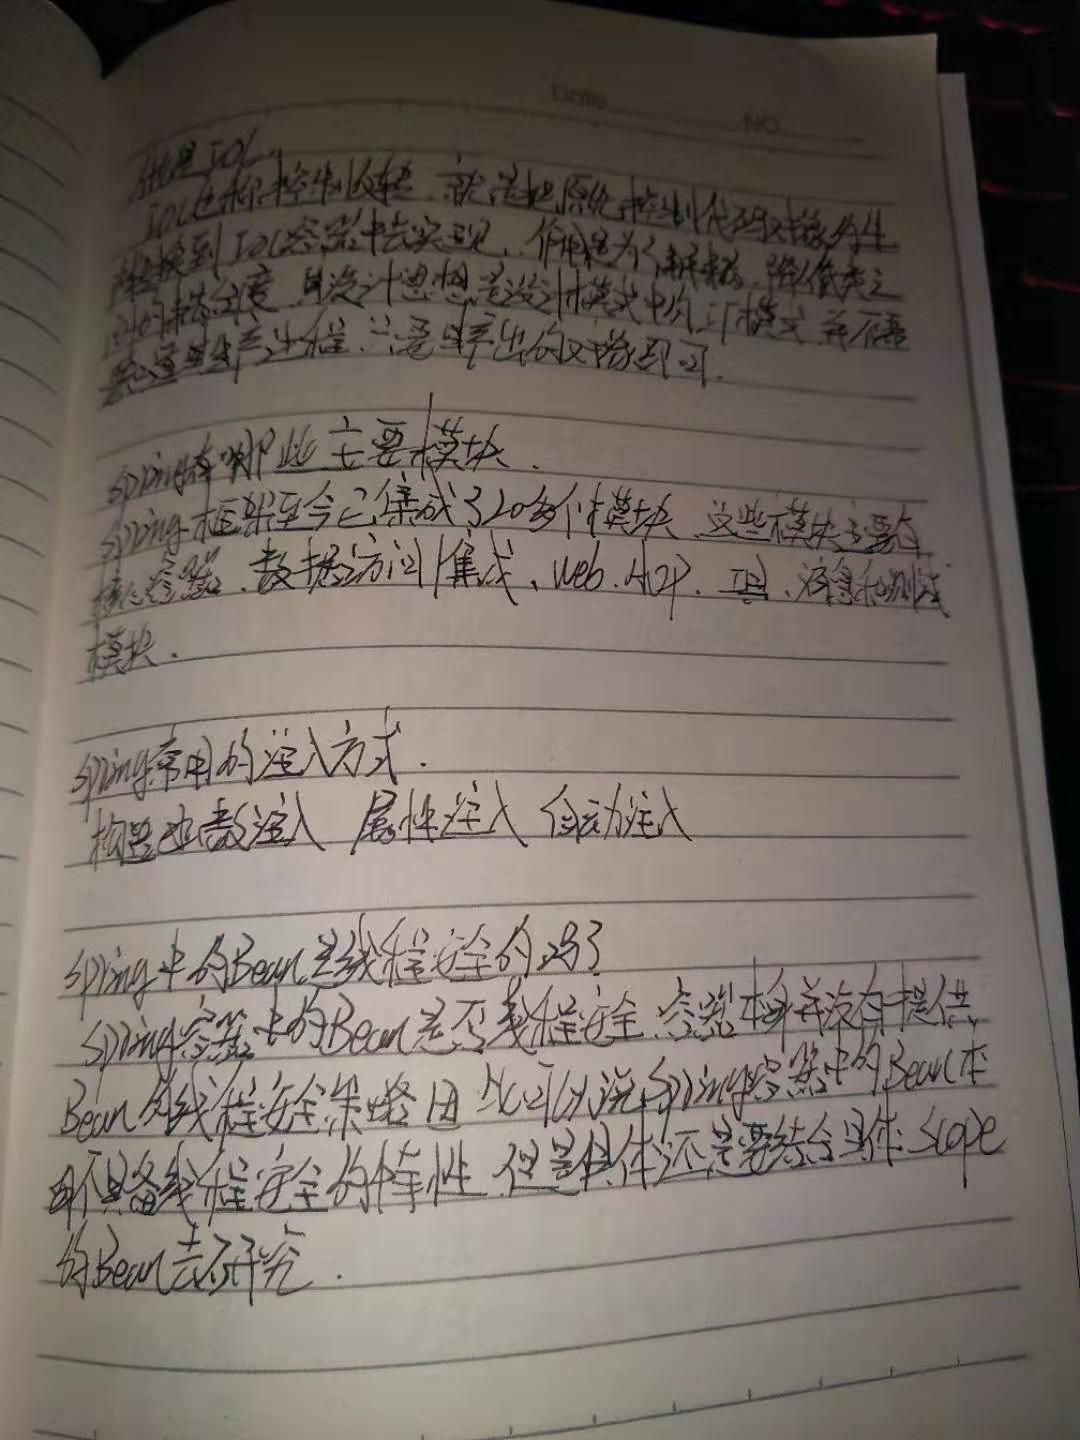 Date
NO
什么是IOC
IOC也称控制反转，就是把原先控制代码对象的生
产转换到IOC容器中去实现，作用是为了解耦，降低类之
间的耦合度，其设计思想是设计模式中的工厂模式，并不需
要过生产过程，只需生产出的对象即可.
spring有哪些主要模块.
spring框架至今已集成了20多个模块，这些模块主要有
核心容器、数据访问/集成、web、AOP、工具、消息和测试
模块.
spring常用的注入方式.
构造函数注入 属性注入 自动注入
spring中的Bean是线程安全的吗?
spring容器中的Bean是否线程安全，容器本身并没有提供
Bean的线程安全策略，因此可以说spring容器中的Bean本
身不具备线程安全的特性，但是具体还是要结合具体scope
的Bean去研究.